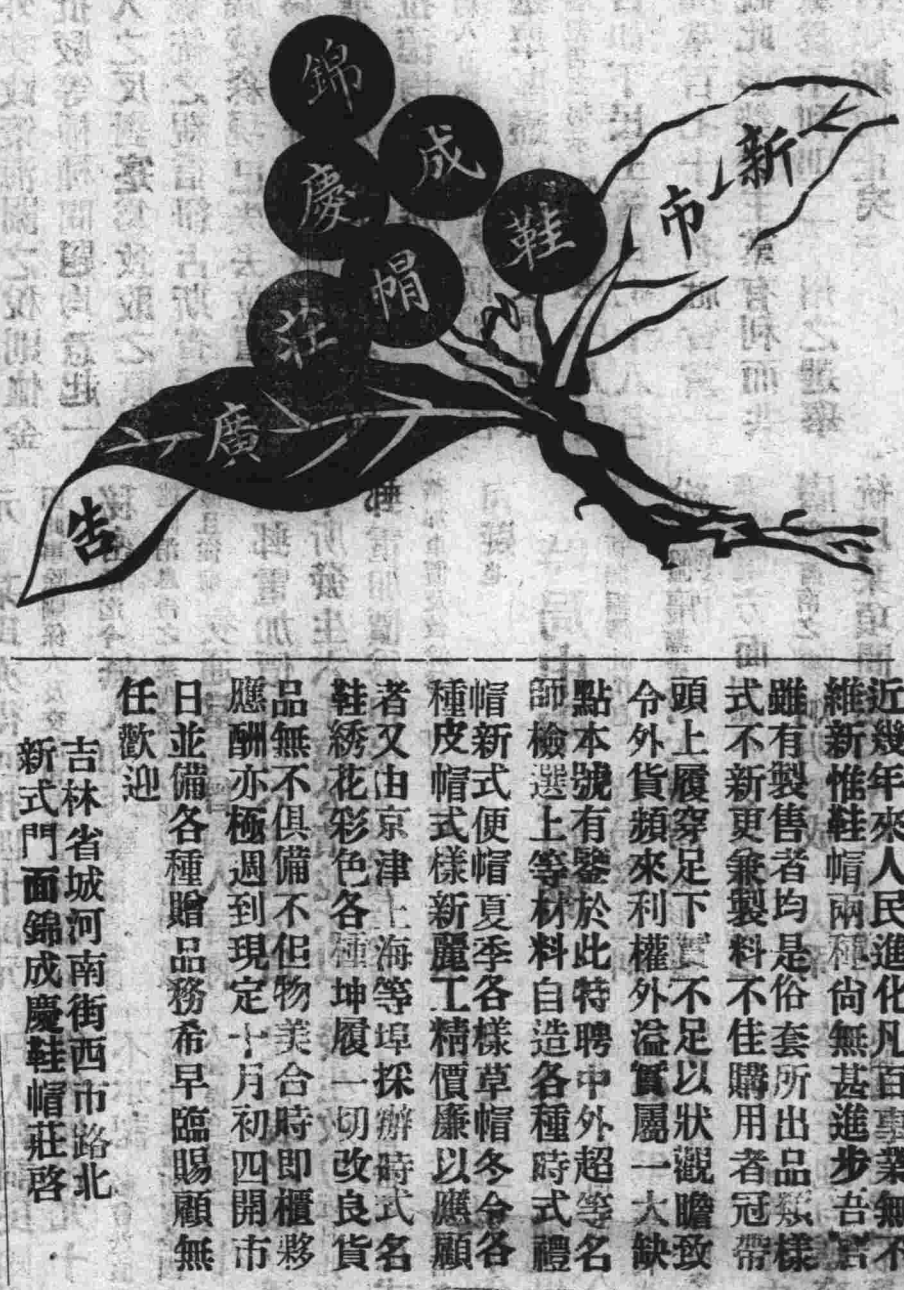 錦成慶鞋帽莊
新市廣告
近幾年來人民進化凡百事業無不
維新惟鞋帽兩種尚無甚進步吾吉
雖有製售者均是俗套所出品類樣
式不新更兼製料不佳購用者冠帶
頭上履穿足下實不足以狀觀瞻致
令外貨頻來利權外溢實屬一大缺
點本號有鑒於此特聘中外超等名
師檢選上等材料自造各種時式禮
帽新式便帽夏季各樣草帽冬令各
種皮帽式樣新麗工精價廉以應顧
者又由京津上海等埠採辦時式名
鞋綉花彩色各種坤履一切改良貨
品無不俱備不但物美合時即櫃夥
應酬亦極週到現定十月初四開市
日並備各種贈品務希早臨賜顧無
任歡迎
吉林省城河南街西市路北
新式門面錦成慶鞋帽莊啓